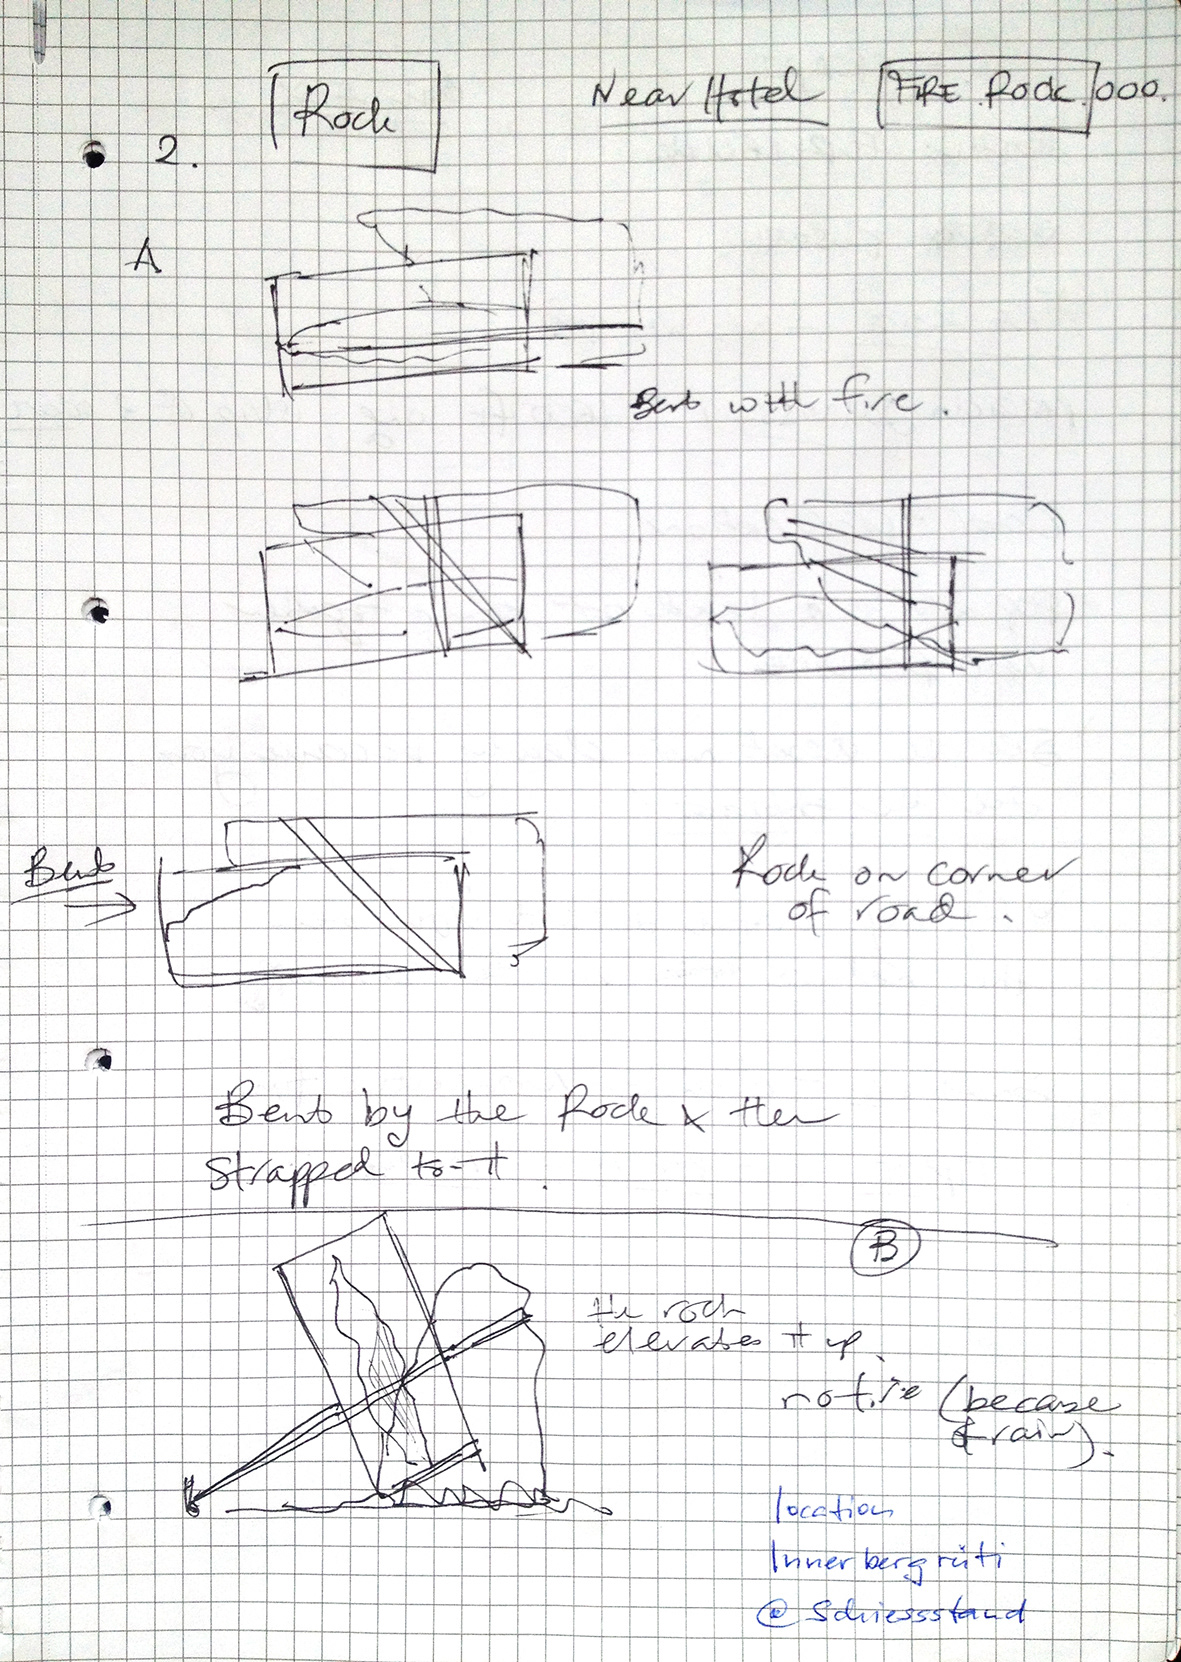 Rock
Near Hotel
FIRE Rock 000.
2.
A
Bent with fire.
Bent
Rock on corner
of road.
Bent by the Rock & then
strapped to it.
B
the rock
elevates it up.
no fire (because
of rain).
location
Innerbergrüti
@ Schiessstand